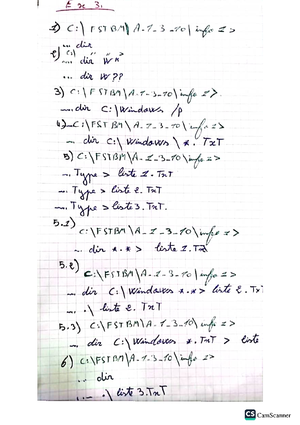 Ex 3.
1) C:\FSTBM\A-1-3-10\info 1>
... dir
2) C:\ dir W*
... dir W??
3) C:\FSTBM\A-1-3-10\info 1>
.... dir C:\Windows /p
4) C:\FSTBM\A-1-3-10\info 1>
... dir C:\Windows\*.TxT
5) C:\FSTBM\A-1-3-10\info 1>
... Type > liste 1.TxT
... Type > liste 2.TxT
... Type > liste 3.TxT.
5.1)
C:\FSTBM\A-1-3-10\info 1>
... dir *.* > liste 1.Txt
5.2)
C:\FSTBM\A-1-3-10\info 1>
... dir C:\Windows *.* > liste 2.Tx
... .\ liste 2.TxT
5.3) C:\FSTBM\A-1-3-10\info 1>
... dir C:\Windows *.TxT > liste
6) C:\FSTBM\A-1-3-10\info 1>
... dir
... .\ liste 3.TxT
CS CamScanner